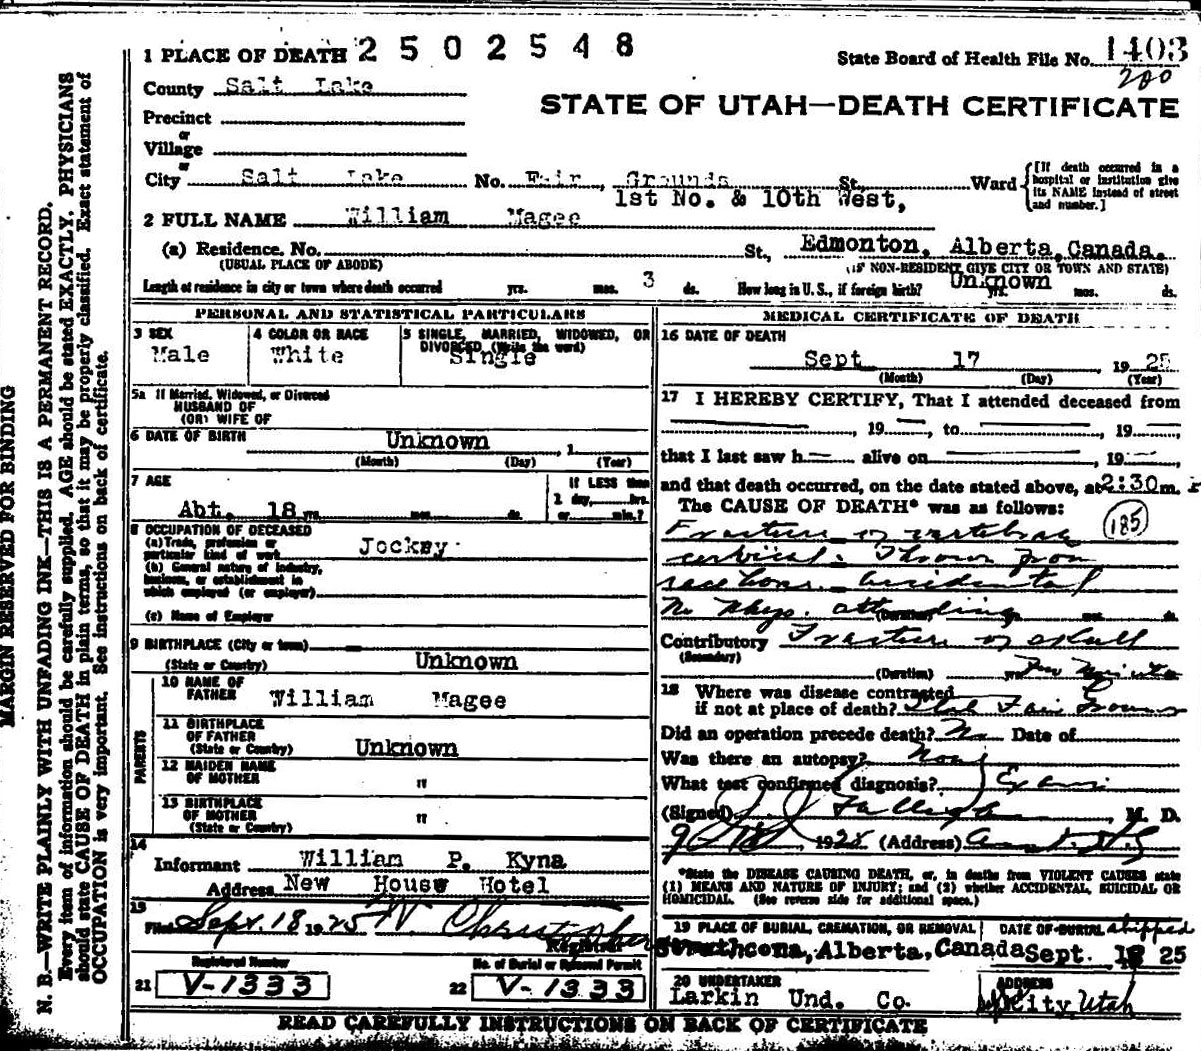 1 PLACE OF DEATH 2502548
State Board of Health File No. 1403
200
County Salt Lake
STATE OF UTAH—DEATH CERTIFICATE
Precinct
or
Village
or
City Salt Lake No. Fair Grounds St., Ward {[If death occurred in a hospital or institution give its NAME instead of street and number.]
1st No. & 10th West,
2 FULL NAME William Magee
(a) Residence. No. St., Edmonton, Alberta, Canada.
(USUAL PLACE OF ABODE) (IF NON-RESIDENT GIVE CITY OR TOWN AND STATE)
Length of residence in city or town where death occurred yrs. mos. 3 ds. How long in U.S., if foreign birth? Unknown yrs. mos. ds.
PERSONAL AND STATISTICAL PARTICULARS
3 SEX
Male
4 COLOR OR RACE
White
5 SINGLE, MARRIED, WIDOWED, OR DIVORCED (Write the word)
Single
5a If Married, Widowed, or Divorced
HUSBAND OF
(OR) WIFE OF
6 DATE OF BIRTH Unknown , 1
(Month) (Day) (Year)
7 AGE
Abt. 18 yrs. mos. ds.
If LESS than
1 day, hrs.
or min.?
8 OCCUPATION OF DECEASED
(a) Trade, profession or
particular kind of work Jockey
(b) General nature of industry,
business, or establishment in
which employed (or employer)
(c) Name of Employer
9 BIRTHPLACE (City or town)
(State or Country) Unknown
PARENTS
10 NAME OF
FATHER William Magee
11 BIRTHPLACE
OF FATHER
(State or Country) Unknown
12 MAIDEN NAME
OF MOTHER "
13 BIRTHPLACE
OF MOTHER "
(State or Country)
14
Informant William P. Kyna
Address New House Hotel
15
Filed Sept. 18 1925 W. Christopherson
Registrar
Registered Number
21 V-1333
No. of Burial or Removal Permit
22 V-1333
MEDICAL CERTIFICATE OF DEATH
16 DATE OF DEATH
Sept 17 1925
(Month) (Day) (Year)
17 I HEREBY CERTIFY, That I attended deceased from
, 19 , to , 19 ,
that I last saw h alive on , 19
and that death occurred, on the date stated above, at 2:30 m.
The CAUSE OF DEATH* was as follows:
(185)
Fracture of vertebrae
cervical. Thrown from
race horse. Accidental
No Phys. attending
(Duration) mos. ds.
Contributory Fracture of skull
(Secondary)
(Duration) yrs. Few Minutes
18 Where was disease contracted
if not at place of death? State Fair Grounds
Did an operation precede death? No Date of
Was there an autopsy? None
What test confirmed diagnosis? Exam
(Signed) M. D.
1925 (Address)
*State the DISEASE CAUSING DEATH, or, in deaths from VIOLENT CAUSES state
(1) MEANS AND NATURE OF INJURY; and (2) whether ACCIDENTAL, SUICIDAL OR
HOMICIDAL. (See reverse side for additional space.)
19 PLACE OF BURIAL, CREMATION, OR REMOVAL
Strathcona, Alberta, Canada
DATE OF BURIAL shipped
Sept. 18 25
20 UNDERTAKER
Larkin Und. Co.
ADDRESS
City Utah
READ CAREFULLY INSTRUCTIONS ON BACK OF CERTIFICATE
MARGIN RESERVED FOR BINDING
N. B.—WRITE PLAINLY WITH UNFADING INK—THIS IS A PERMANENT RECORD.
Every item of information should be carefully supplied. AGE should be stated EXACTLY. PHYSICIANS
should state CAUSE OF DEATH in plain terms, so that it may be properly classified. Exact statement of
OCCUPATION is very important. See instructions on back of certificate.